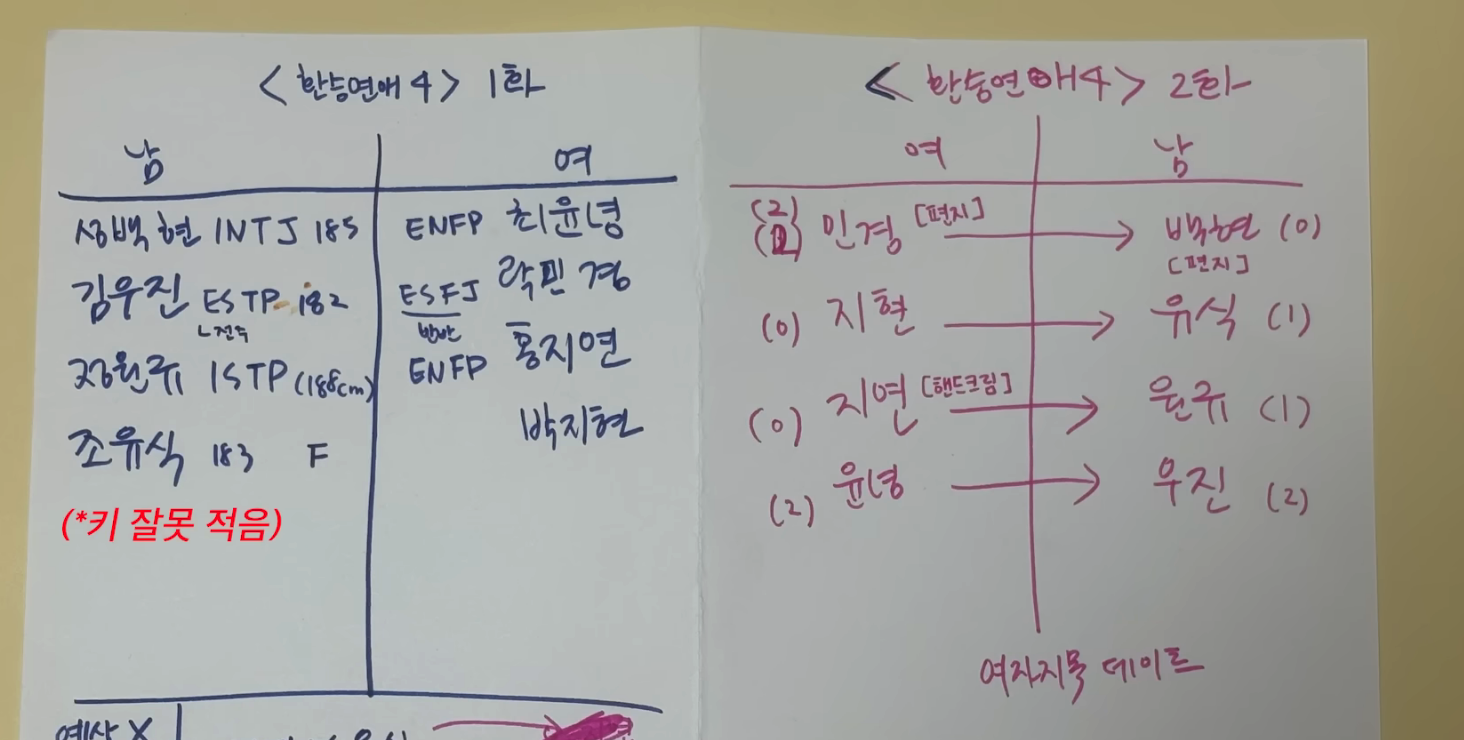 <환승연애4> 1화
남 여
성백현 INTJ 185 ENFP 최윤녕
김우진 ESTP 182 ESFJ 곽민경
ㄴ전두 반반
정원규 ISTP (188cm) ENFP 홍지연
조유식 183 F 박지현
(*키 잘못 적음)
예상 X
<환승연애4> 2화
여 남
(2) 민경 [편지] → 백현 (0)
[편지]
(0) 지현 → 유식 (1)
(0) 지연 [핸드크림] → 원규 (1)
(2) 윤녕 → 우진 (2)
여자지목 데이트